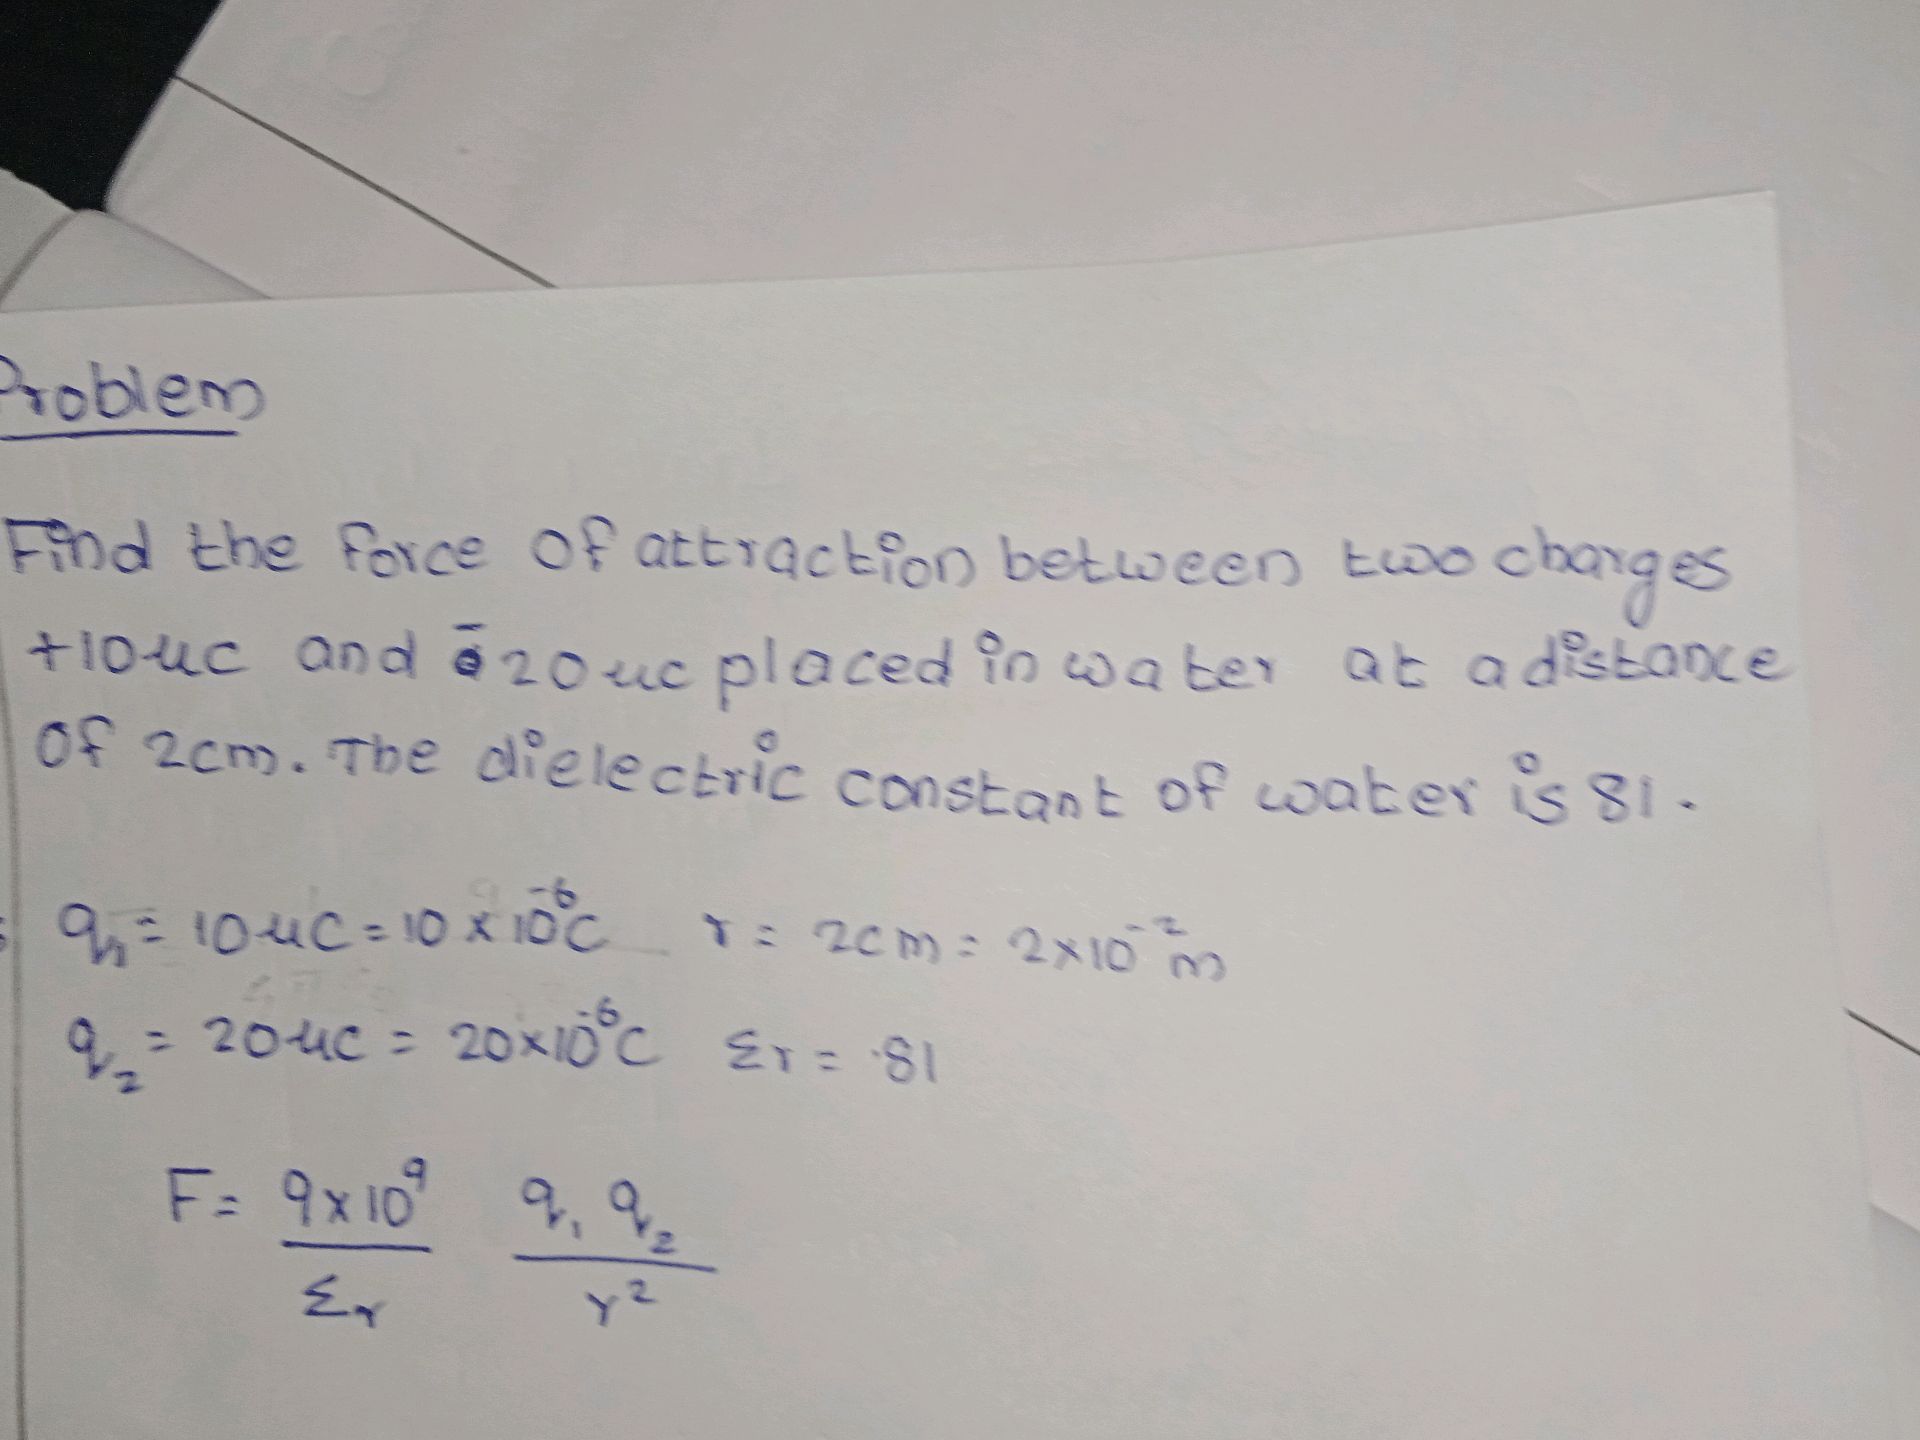 Problem
Find the force of attraction between two charges
+10μc and -20μc placed in water at a distance
of 2cm. The dielectric constant of water is 81.
q₁ = 10μC = 10 × 10⁻⁶C r = 2cm = 2×10⁻²m
q₂ = 20μC = 20×10⁻⁶C Ɛr = 81
F = 9×10⁹ q₁ q₂
Ɛr r²